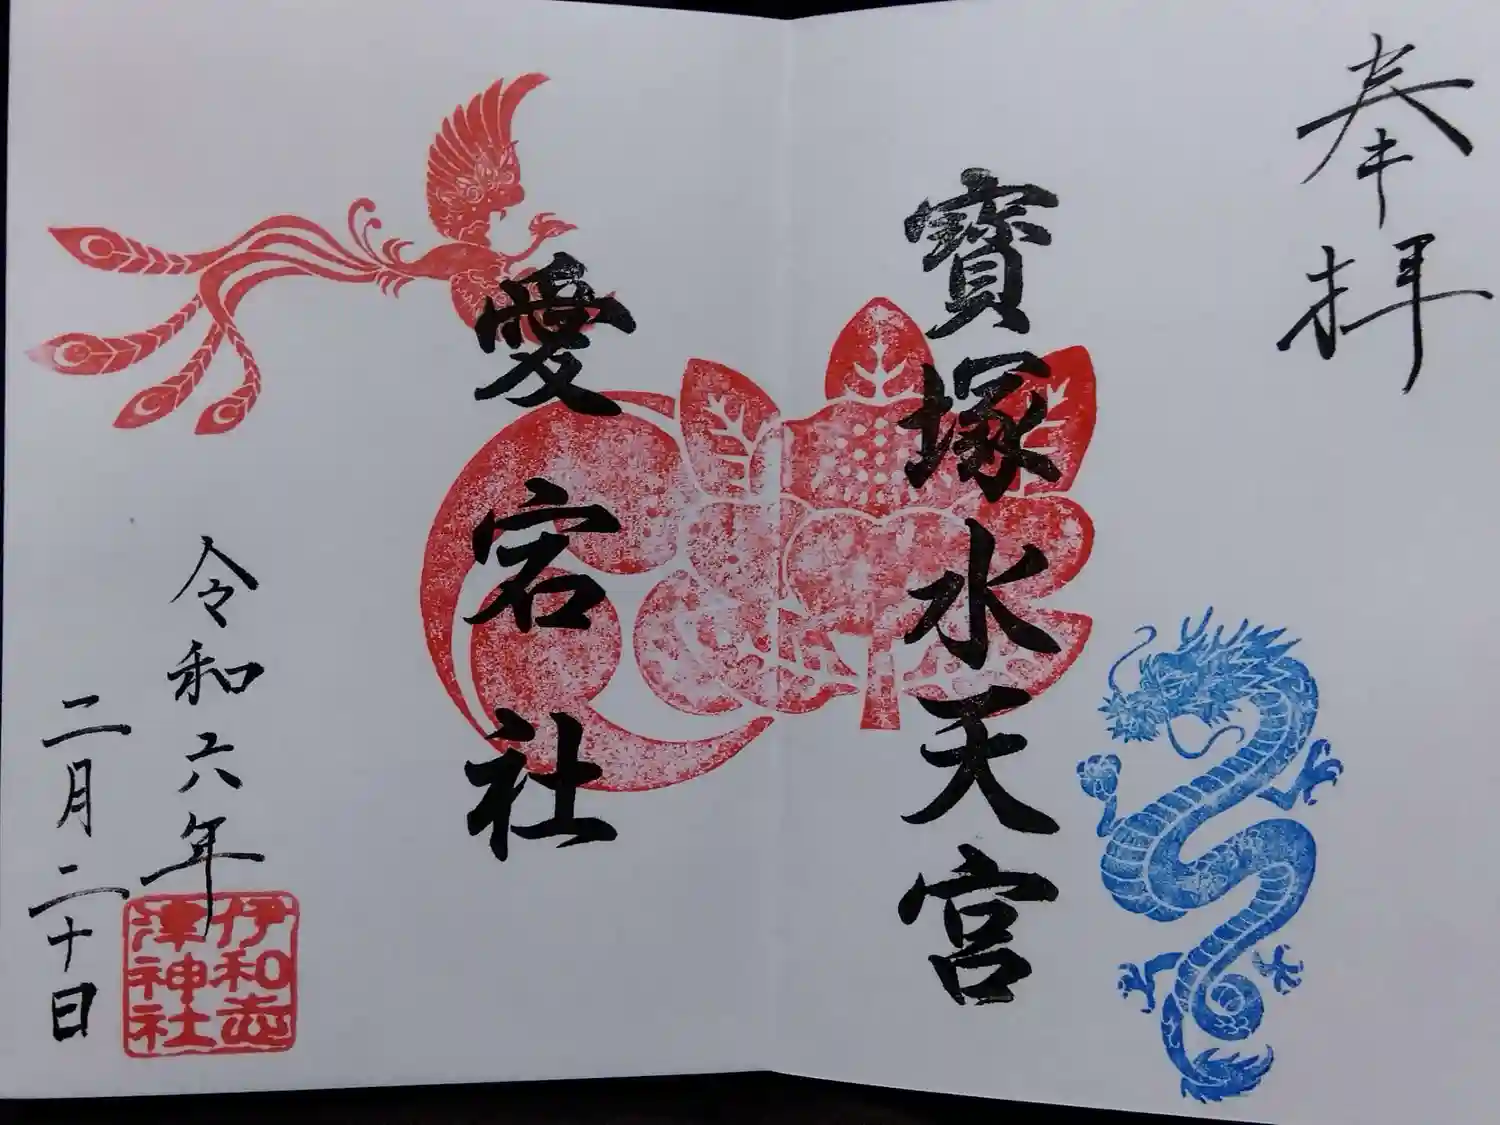 奉拝
寳塚水天宮
愛宕社
令和六年
二月二十日
伊和志
津神社